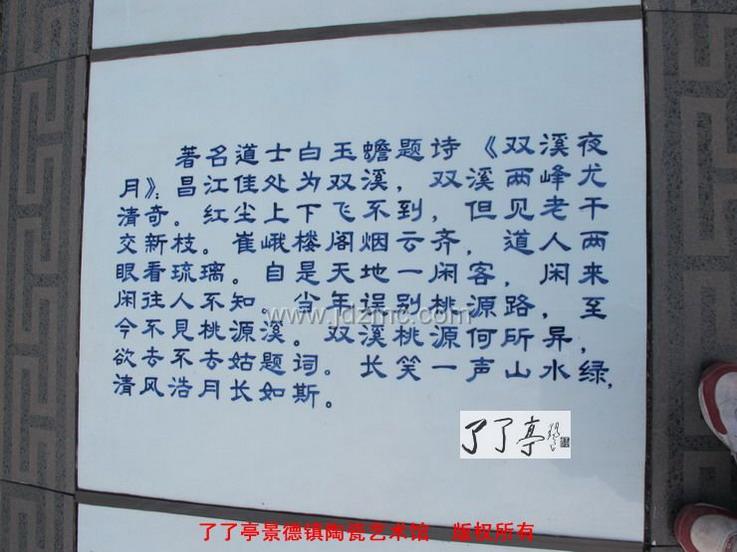 著名道士白玉蟾题诗《双溪夜
月》：昌江佳处为双溪，双溪两峰尤
清奇。红尘上下飞不到，但见老干
交新枝。崔峨楼阁烟云齐，道人两
眼看琉璃。自是天地一闲客，闲来
闲往人不知。当年误别桃源路，至
www.jdzmc.com
今不見桃源溪。双溪桃源何所异，
欲去不去姑题词。长笑一声山水绿，
清风浩月长如斯。
了了亭
了了亭景德镇陶瓷艺术馆 版权所有